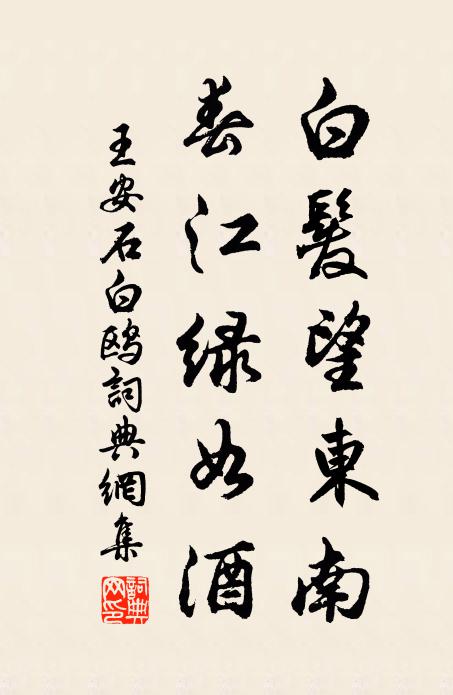 白髮望東南
春江綠如酒
王安石白鷗詞典網集
詞典網印